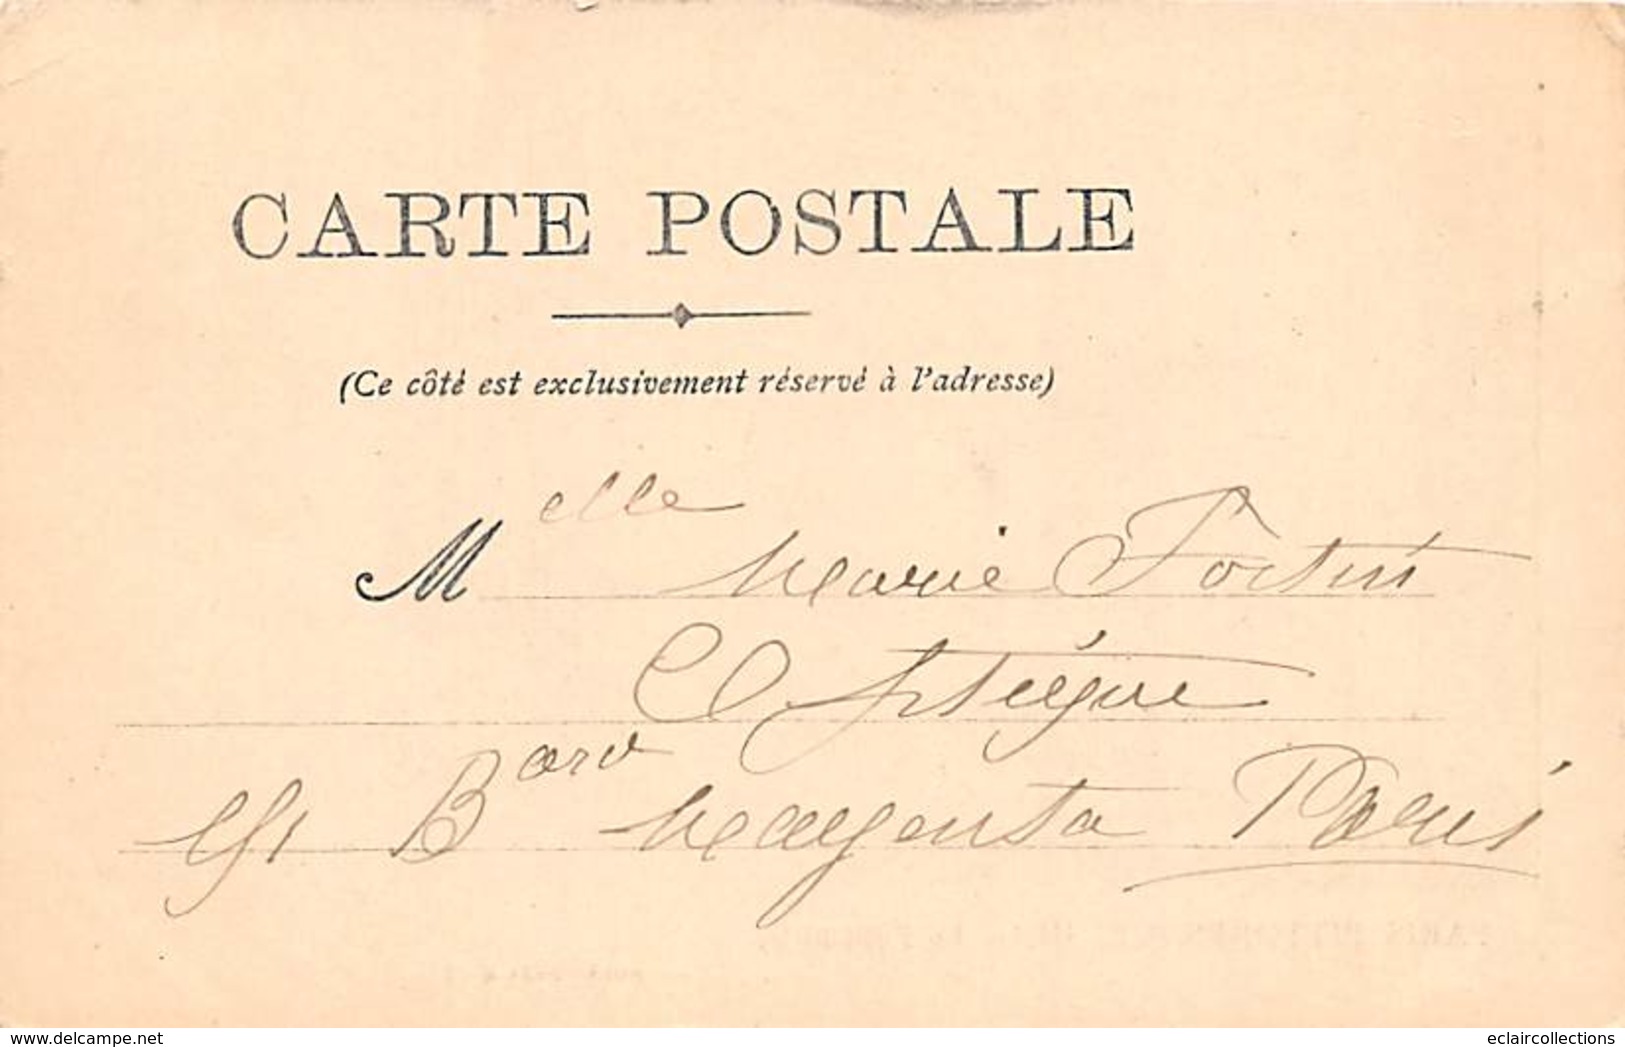 CARTE POSTALE
(Ce côté est exclusivement réservé à l'adresse)
Melle Marie Fortin
Bard Magenta Paris
delcampe.net
eclaircollections